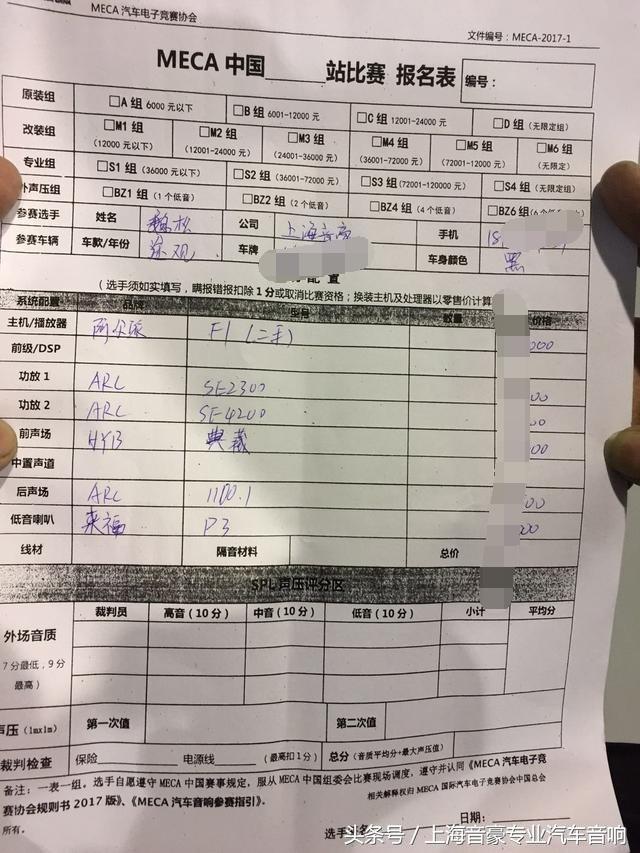 MECA 汽车电子竞赛协会
文件编号：MECA-2017-1
MECA 中国____站比赛 报名表 编号：
原装组 □A 组 6000 元以下 □B 组 6001-12000 元 □C 组 12001-24000 元 □D 组 (无限定组)
改装组 □M1 组 (12000 元以下) □M2 组 (12001-24000 元) □M3 组 (24001-36000 元) □M4 组 (36001-72000 元) □M5 组 (72001-12000 元) □M6 组 (无限定)
专业组 □S1 组 (36000 元以下) □S2 组 (36001-72000 元) □S3 组 (72001-120000 元) □S4 组 (无限定组)
外声压组 □BZ1 组 (1 个低音) □BZ2 组 (2 个低音) □BZ4 组 (4 个低音) □BZ6 组
参赛选手 姓名 魏松 公司 上海音豪 手机 18
参赛车辆 车款/年份 途观 车牌 车身颜色 黑
配置
(选手须如实填写，瞒报错报扣除 1 分或取消比赛资格；换装主机及处理器以零售价计算
系统配置 品牌 型号 数量 价格
主机/播放器 阿尔派 F1 (二手) 000
前级/DSP
功放 1 ARC SE2300 00
功放 2 ARC SE4200 00
前声场 HYB 典藏 00
中置声道
后声场 ARC 1100.1 00
低音喇叭 来福 P3 00
线材 隔音材料 总价
SPL 声压评分区
裁判员 高音 (10 分) 中音 (10 分) 低音 (10 分) 小计 平均分
外场音质
7 分最低，9 分
最高)
声压 (1mx1m) 第一次值 第二次值
裁判检查 保险____ 电源线____ (最高扣 1 分) 总分 (音质平均分+最大声压值)
备注：一表一组。选手自愿遵守 MECA 中国赛事规定，服从 MECA 中国组委会比赛现场调度，遵守并认同《MECA 汽车电子竞
赛协会规则书 2017 版》、《MECA 汽车音响参赛指引》。 相关解释权归 MECA 国际汽车电子竞赛协会中国总会
所有。
选手签名： 日期：
头条号／上海音豪专业汽车音响